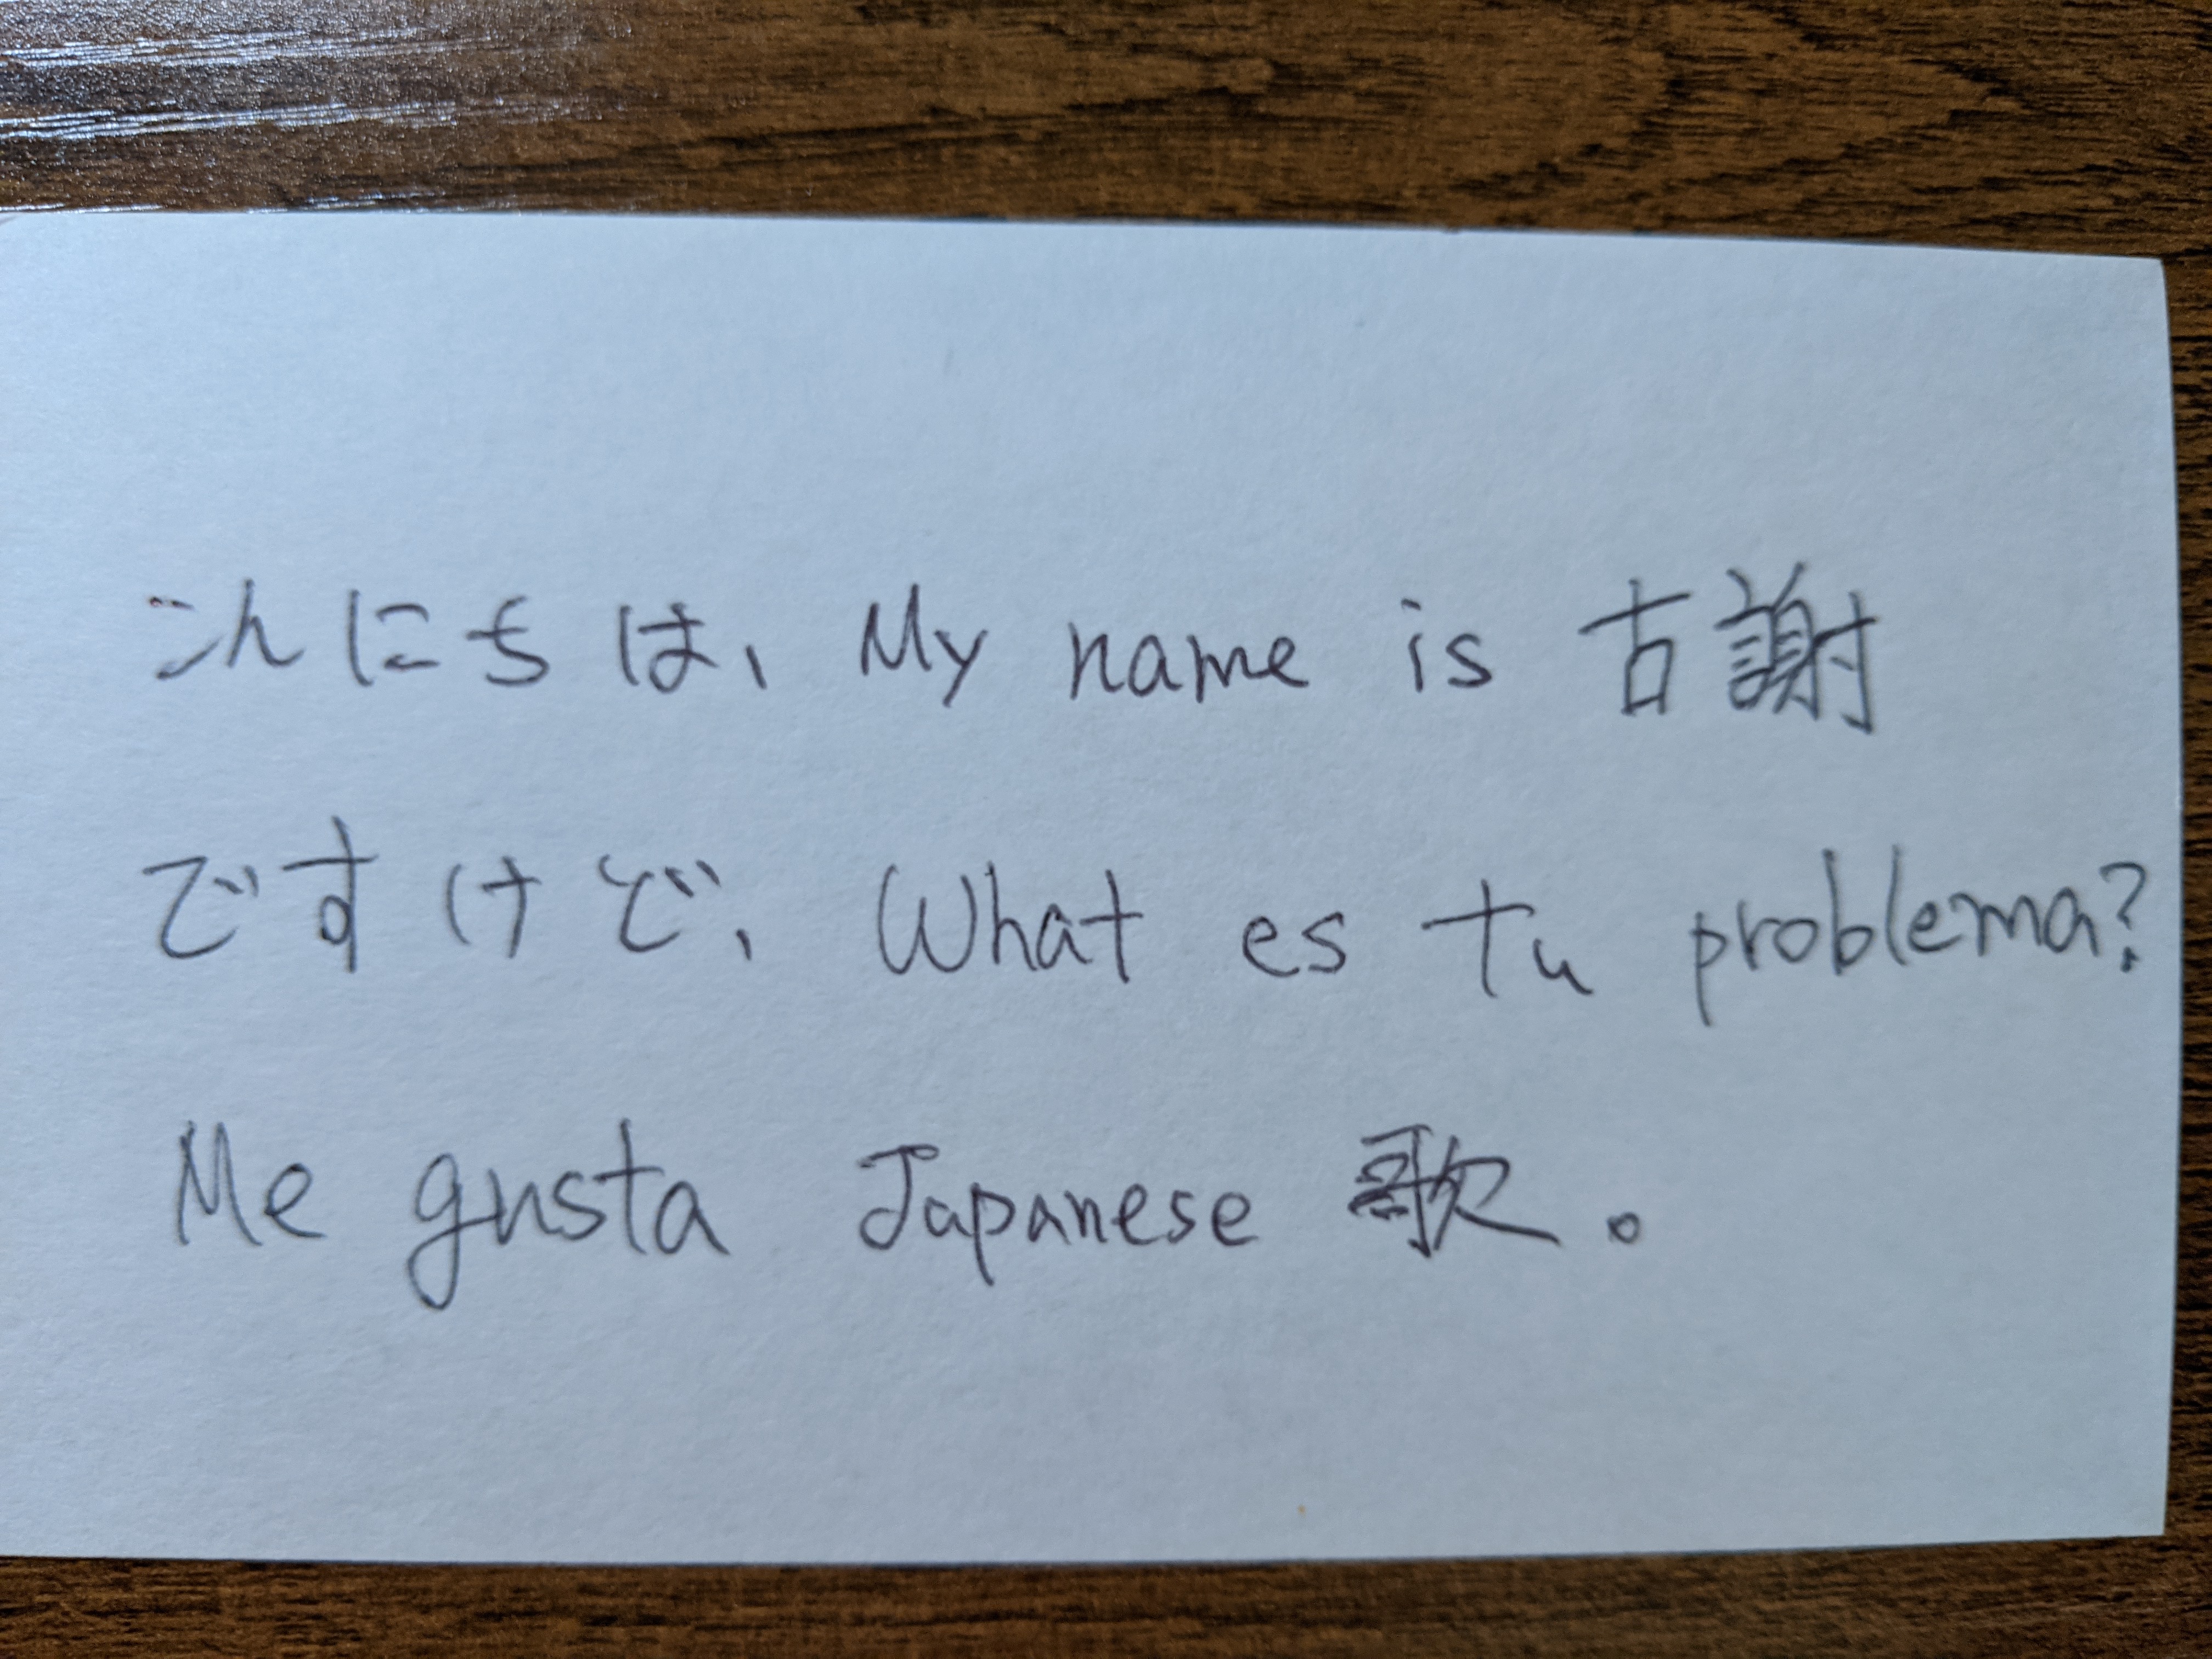 こんにちは、My name is 古謝
ですけど、What es tu problema?
Me gusta Japanese 歌。